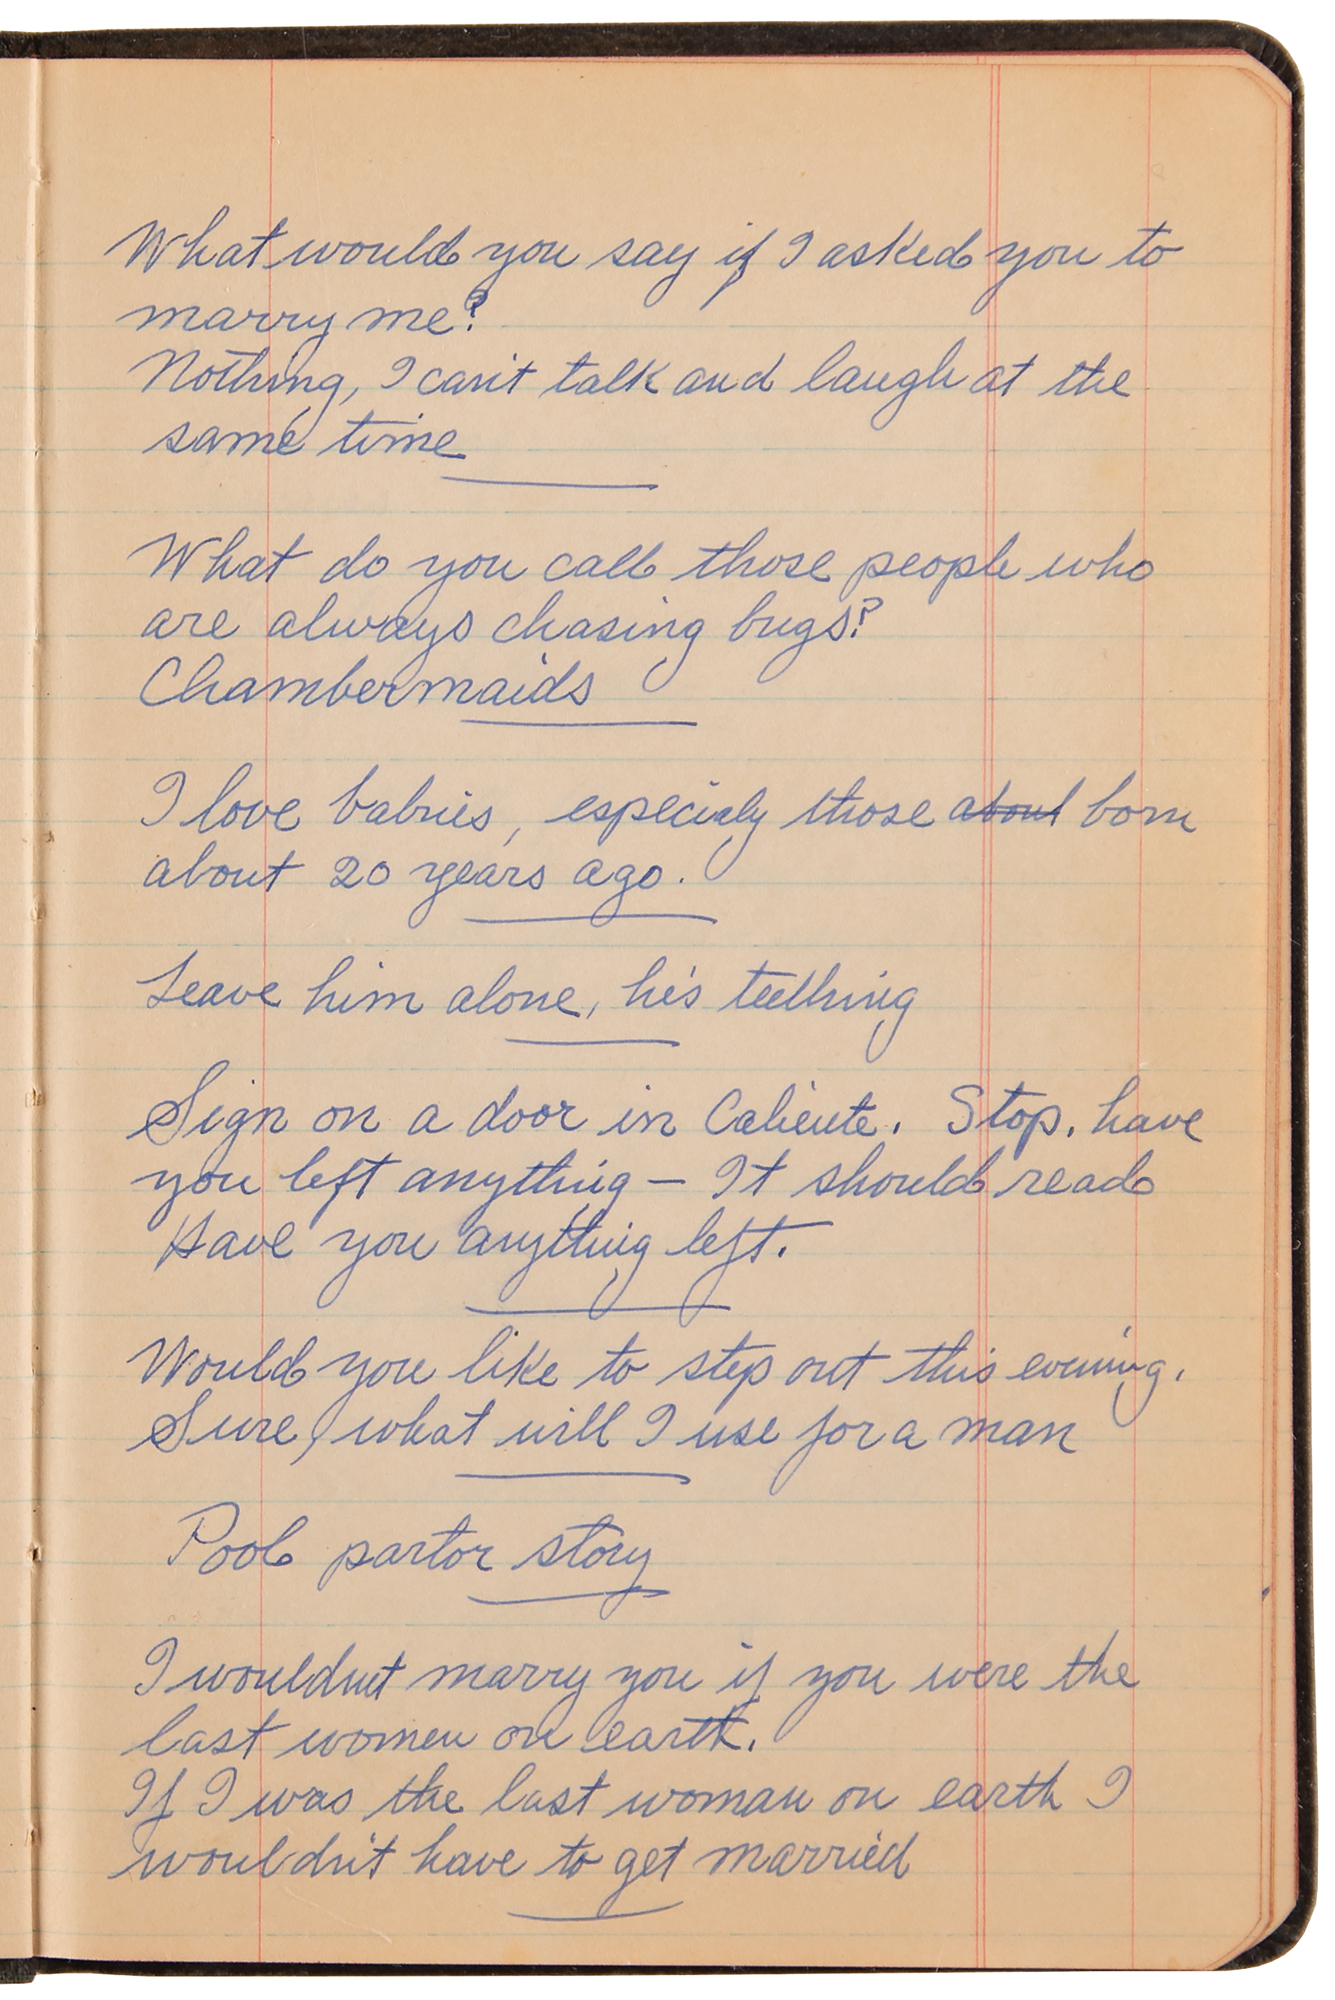 What would you say if I asked you to
marry me?
Nothing, I can't talk and laugh at the
same time
What do you call those people who
are always chasing bugs?
Chambermaids
I love babies, especialy those about born
about 20 years ago.
Leave him alone, he's teething
Sign on a door in Caliente. Stop, have
you left anything — It should read
Have you anything left.
Would you like to step out this evening.
Sure, what will I use for a man
Pool partor story
I wouldnt marry you if you were the
last women on earth.
If I was the last woman on earth I
wouldn't have to get married